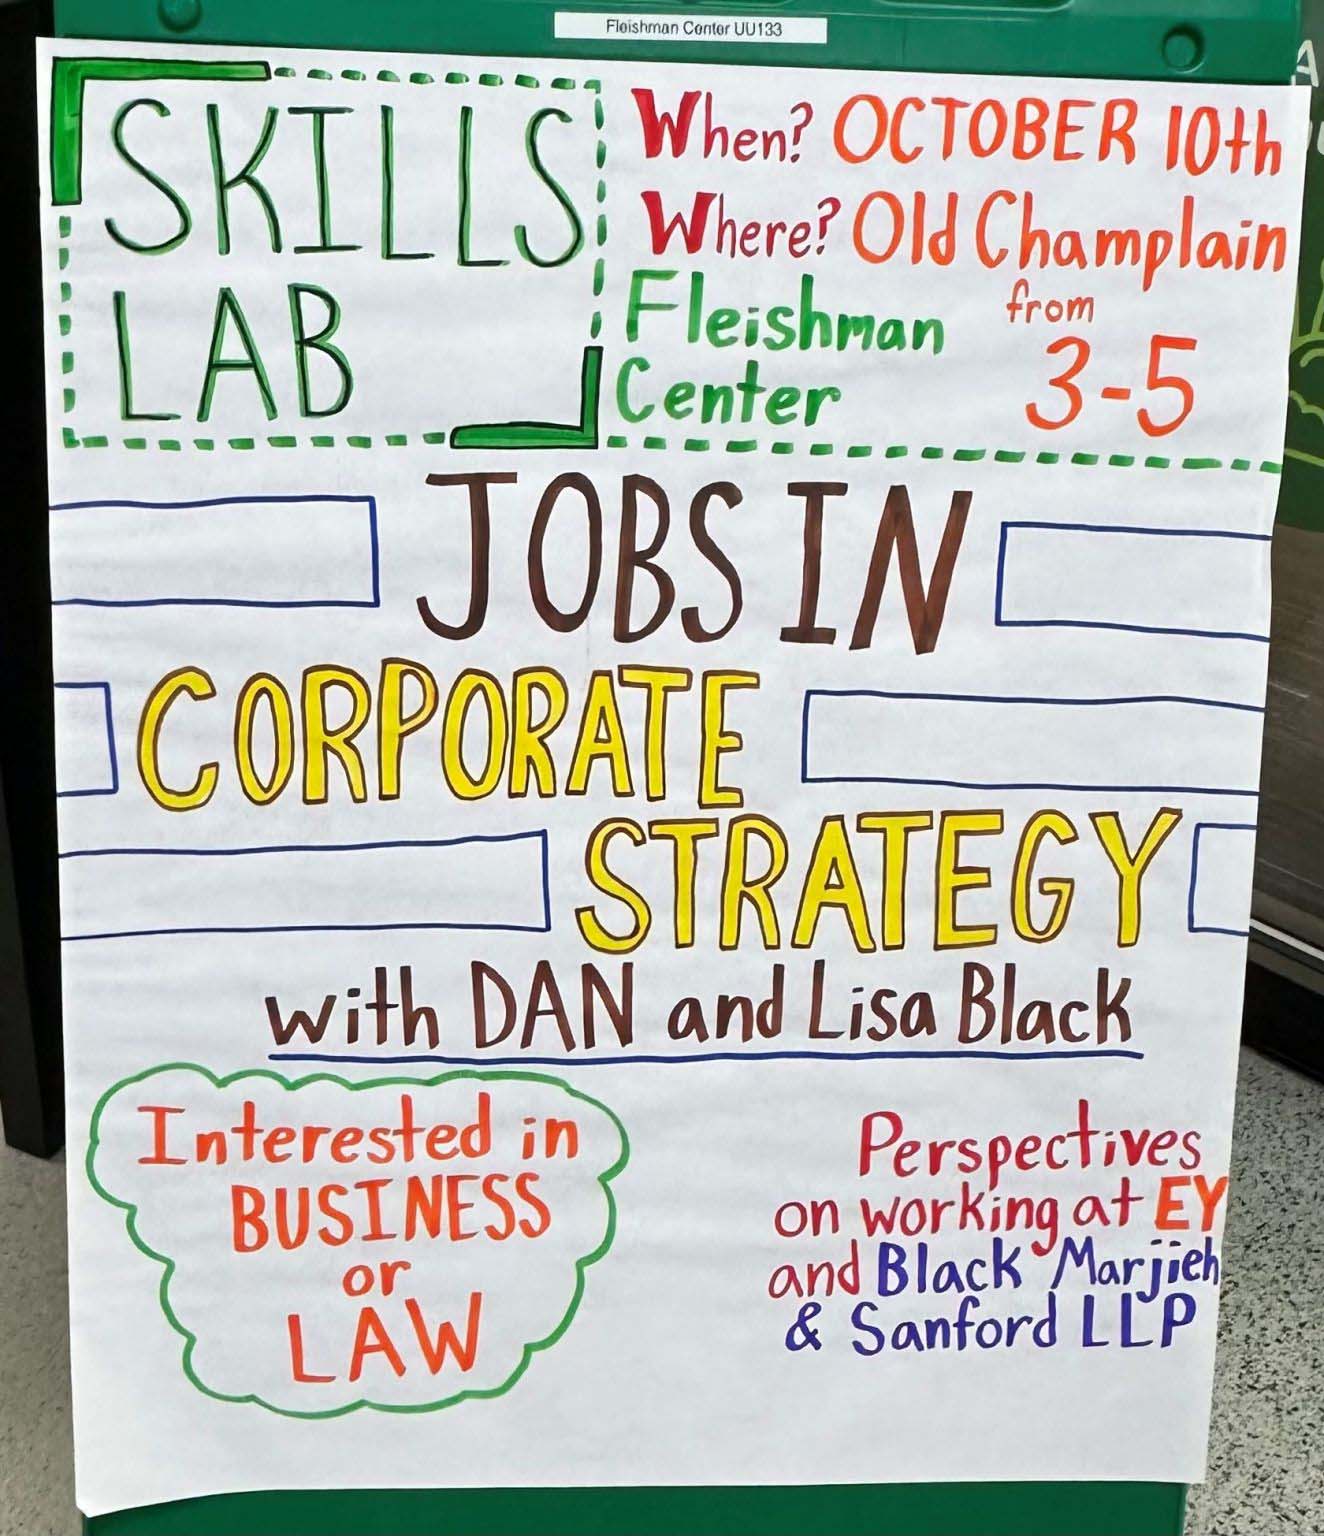 Fleishman Center UU133
SKILLS
LAB
When? OCTOBER 10th
Where? Old Champlain
Fleishman
Center
from
3-5
JOBS IN
CORPORATE
STRATEGY
with DAN and Lisa Black
Interested in
BUSINESS
or
LAW
Perspectives
on working at EY
and Black Marjieh
& Sanford LLP